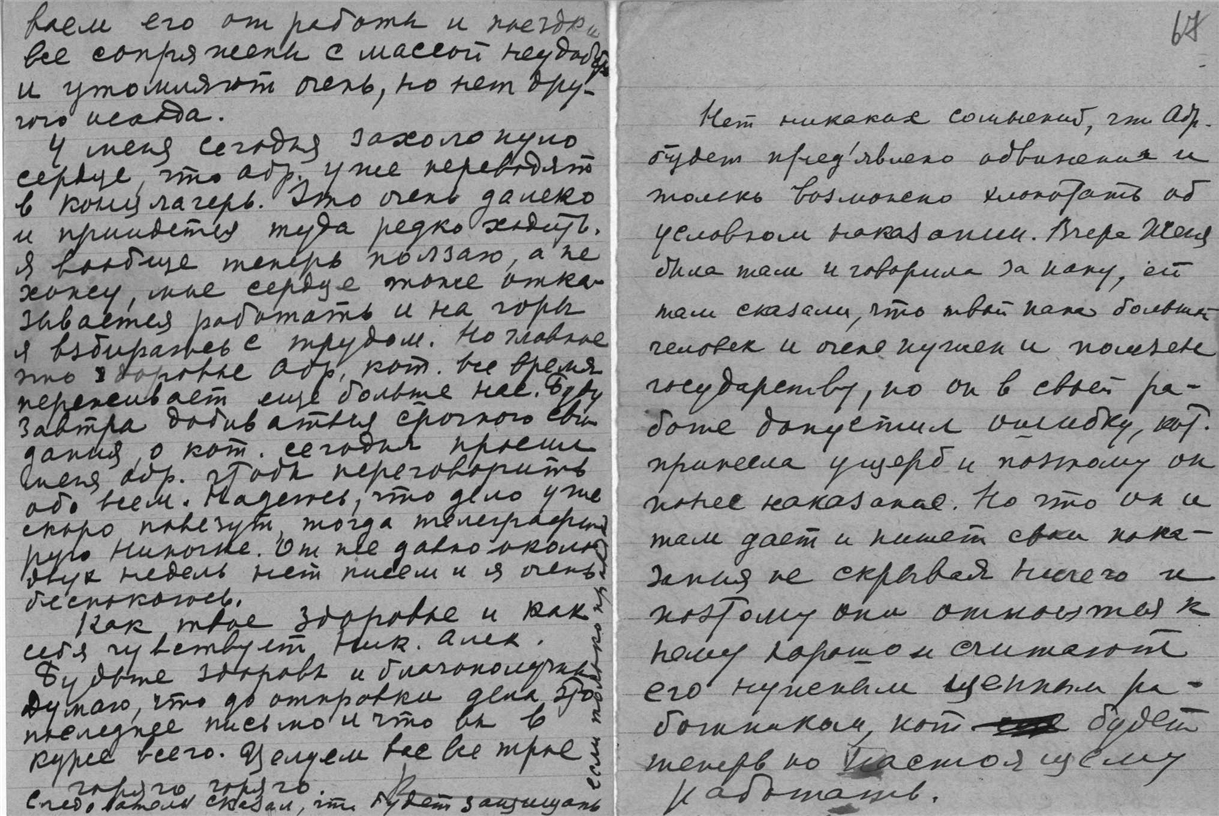 ваем его от работы и поездки
все сопряжены с массой неудобств
и утомляют очень, но нет дру-
гого исхода.
У меня сегодня захолонуло
сердце, что Абр. уже переводят
в концлагерь. Это очень далеко
и придётся туда редко ходить.
Я вообще теперь ползаю, а не
хожу, мое сердце тоже отка-
зывается работать и на горы
я взбираюсь с трудом. Но главное
это здоровье Абр, кот. все время
переживает еще больше нас. Буду
завтра добиваться срочного сви-
дания, о кот. сегодня просил
меня Абр. чтобы переговорить
обо всем. Надеюсь, что дело уже
скоро повезут, тогда телеграфи-
рую Ниночке. От нее давно около
двух недель нет писем и я очень
беспокоюсь.
Как твое здоровье и как
себя чувствует Ник. Алек.
Будьте здоровы и благополучны
Думаю, что до отправки дела это
последнее письмо и что вы в
курсе всего. Целуем вас все трое
горячо, горячо.
Следователь сказал, что будет защищать
если только
67
Нет никаких сомнений, что Абр.
будет пред'явлено обвинение и
только возможно хлопотать об
условном наказании. Вчера Женя
была там и говорила за папу, ей
там сказали, что твой папа большой
человек и очень нужен и полезен
государству, но он в своей ра-
боте допустил ошибку, кот.
принесла ущерб и поэтому он
понес наказание. Но что он и
там дает и пишет свои пока-
зания не скрывая ничего и
поэтому они относятся к
нему хорошо и считают
его нужным ценным ра-
ботником, кот будет
теперь по настоящему
работать.